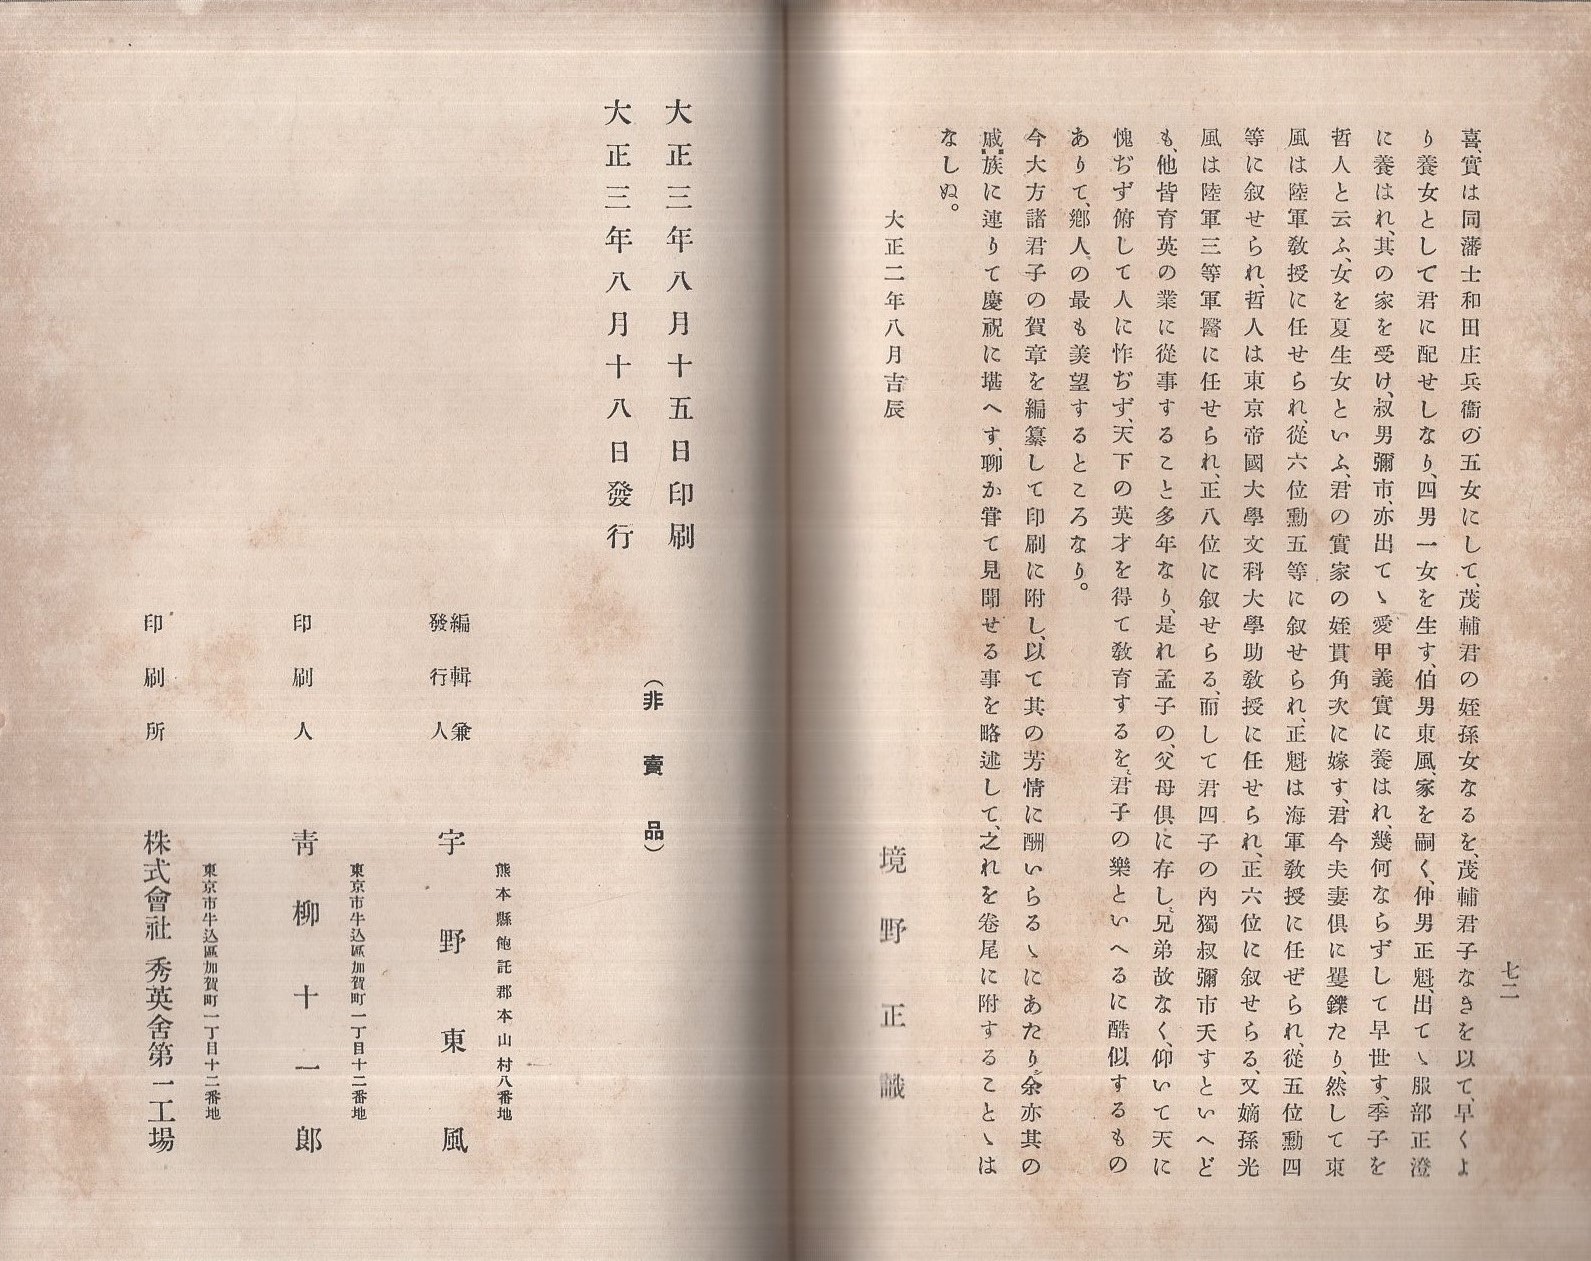 七二
喜、實は同藩士和田庄兵衞の五女にして、茂輔君の姪孫女なるを、茂輔君子なきを以て、早くよ
り養女として君に配せしなり、四男一女を生す、伯男東風、家を嗣く、仲男正魁、出てゝ服部正澄
に養はれ、其の家を受け、叔男彌市、亦出てゝ愛甲義實に養はれ、幾何ならずして早世す、季子を
哲人と云ふ、女を夏生女といふ、君の實家の姪貫角次に嫁す、君今夫妻俱に矍鑠たり、然して東
風は陸軍敎授に任せられ、從六位勳五等に叙せられ、正魁は海軍敎授に任ぜられ、從五位勳四
等に叙せられ、哲人は東京帝國大學文科大學助敎授に任せられ、正六位に叙せらる、又嫡孫光
風は陸軍三等軍醫に任せられ、正八位に叙せらる、而して君四子の內獨叔彌市夭すといへど
も、他皆育英の業に從事すること多年なり、是れ孟子の、父母俱に存し、兄弟故なく、仰いて天に
愧ぢず俯して人に怍ぢず、天下の英才を得て敎育するを、君子の樂といへるに酷似するもの
ありて、鄕人の最も羨望するところなり。
今大方諸君子の賀章を編纂して印刷に附し、以て其の芳情に酬いらるゝにあたり、余亦其の
戚族に連りて慶祝に堪へす、聊か甞て見聞せる事を略述して、之れを卷尾に附することゝは
なしぬ。
大正二年八月吉辰
境野正識
大正三年八月十五日印刷
大正三年八月十八日發行
（非賣品）
熊本縣飽託郡本山村八番地
編輯兼
發行人
宇野東風
東京市牛込區加賀町一丁目十二番地
印刷人
靑柳十一郎
東京市牛込區加賀町一丁目十二番地
印刷所
株式會社 秀英舍第一工場